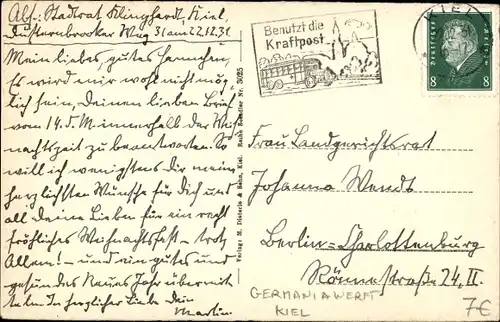 Abs.: Stadtrat Klinghardt, Kiel,
Düsternbrooker Weg 31 am 22.12.31.
Mein liebes, gutes Hannchen,
Es wird mir wohl nicht mög-
lich sein, Deinen lieben Brief
vom 14. d. M. innerhalb der Weih-
nachtszeit zu beantworten. So
will ich wenigstens Dir meine
herzlichsten Wünsche für Dich und
all Deine Lieben für ein recht
fröhliches Weihnachtsfest – trotz
Allem! – und ein gutes und
gesundes Neues Jahr übermit-
teln. In herzlicher Liebe Dein
Martin.
Verlag: M. Dieterle & Sohn, Kiel. Nr. 3025
Benutzt die
Kraftpost
KIEL
Deutsches Reich
8 8
Frau Landgerichtsrat
Johanna Wendt
Berlin-Charlottenburg
Rönnestraße 24, II.
GERMANIAWERFT
KIEL
7€